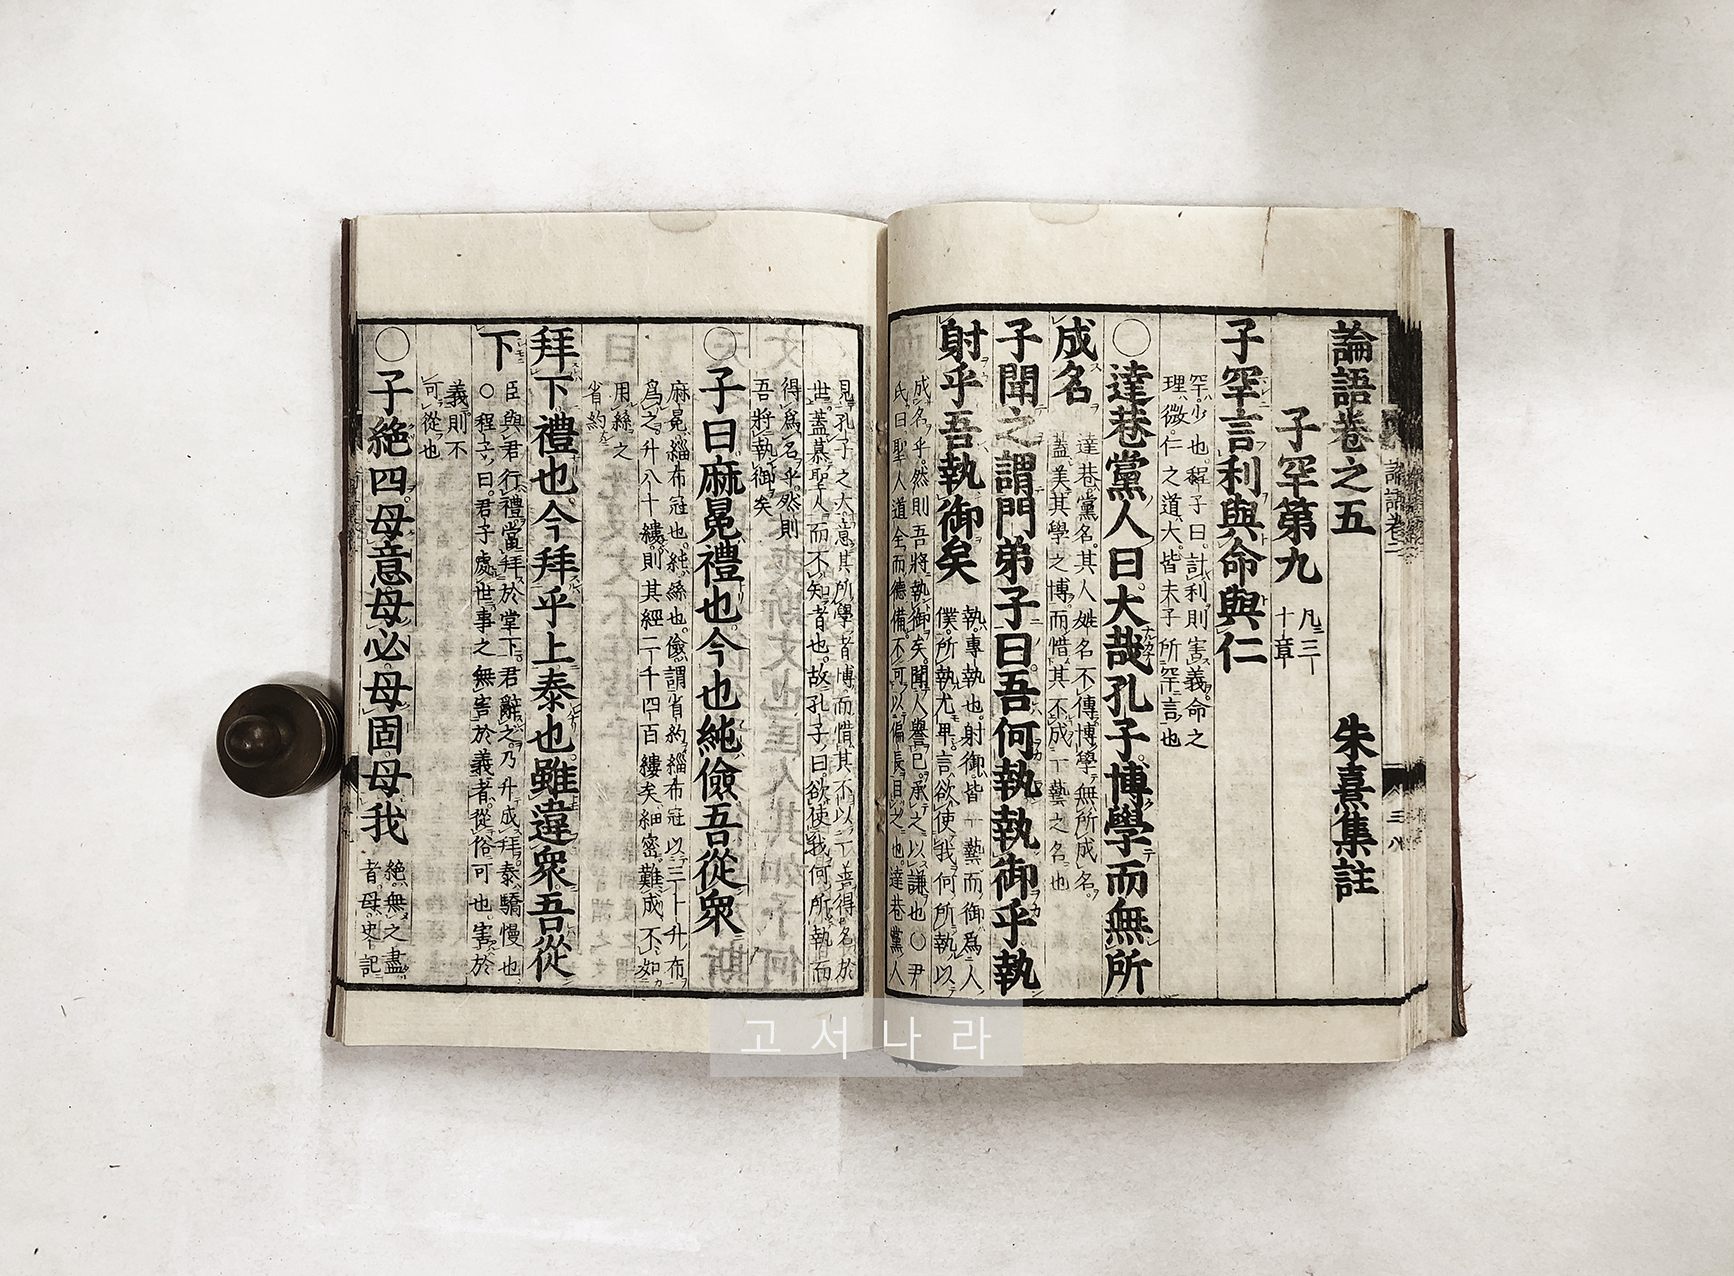 論語卷之五 朱熹集註
子罕第九 凡三十章
子罕言利與命與仁
罕少也程子曰計利則害義命之
理微仁之道大皆夫子所罕言也
○達巷黨人曰大哉孔子博學而無所
成名
達巷黨名其人姓名不傳博學無所成名
蓋美其學之博而惜其不成一藝之名也
子聞之謂門弟子曰吾何執執御乎執
射乎吾執御矣
執專執也射御皆一藝而御爲人
僕所執尤卑言欲使我何所執以
成名乎然則吾將執御矣聞人譽己承之以謙也○尹
氏曰聖人道全而德備不可以偏長目之也達巷黨人
見孔子之大意其所學者博而惜其不以一善得名於
世蓋慕聖人而不知者也故孔子曰欲使我何所執而
得爲名乎然則
吾將執御矣
○子曰麻冕禮也今也純儉吾從衆
麻冕緇布冠也純絲也儉謂省約緇布冠以三十升布
爲之升八十縷則其經二千四百縷矣細密難成不如
用絲之
省約
拜下禮也今拜乎上泰也雖違衆吾從
下
臣與君行禮當拜於堂下君辭之乃升成拜泰驕慢也
○程子曰君子處世事之無害於義者從俗可也害於
義則不
可從也
○子絶四毋意毋必毋固毋我
絶無之盡
者毋史記
論語卷三
三八
고서나라